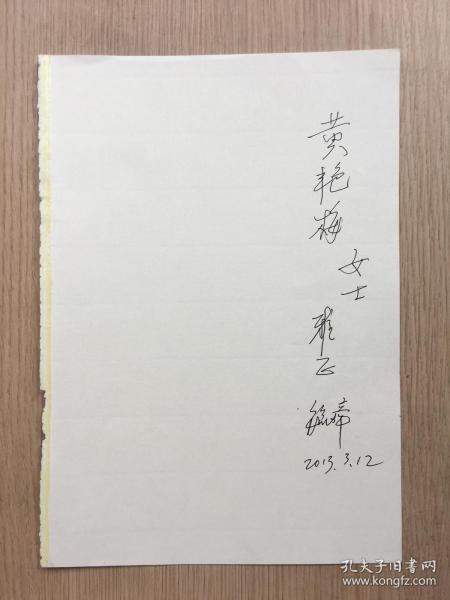 黄艳梅
女士
雅正
2013.3.12
孔夫子旧书网
www.kongfz.com